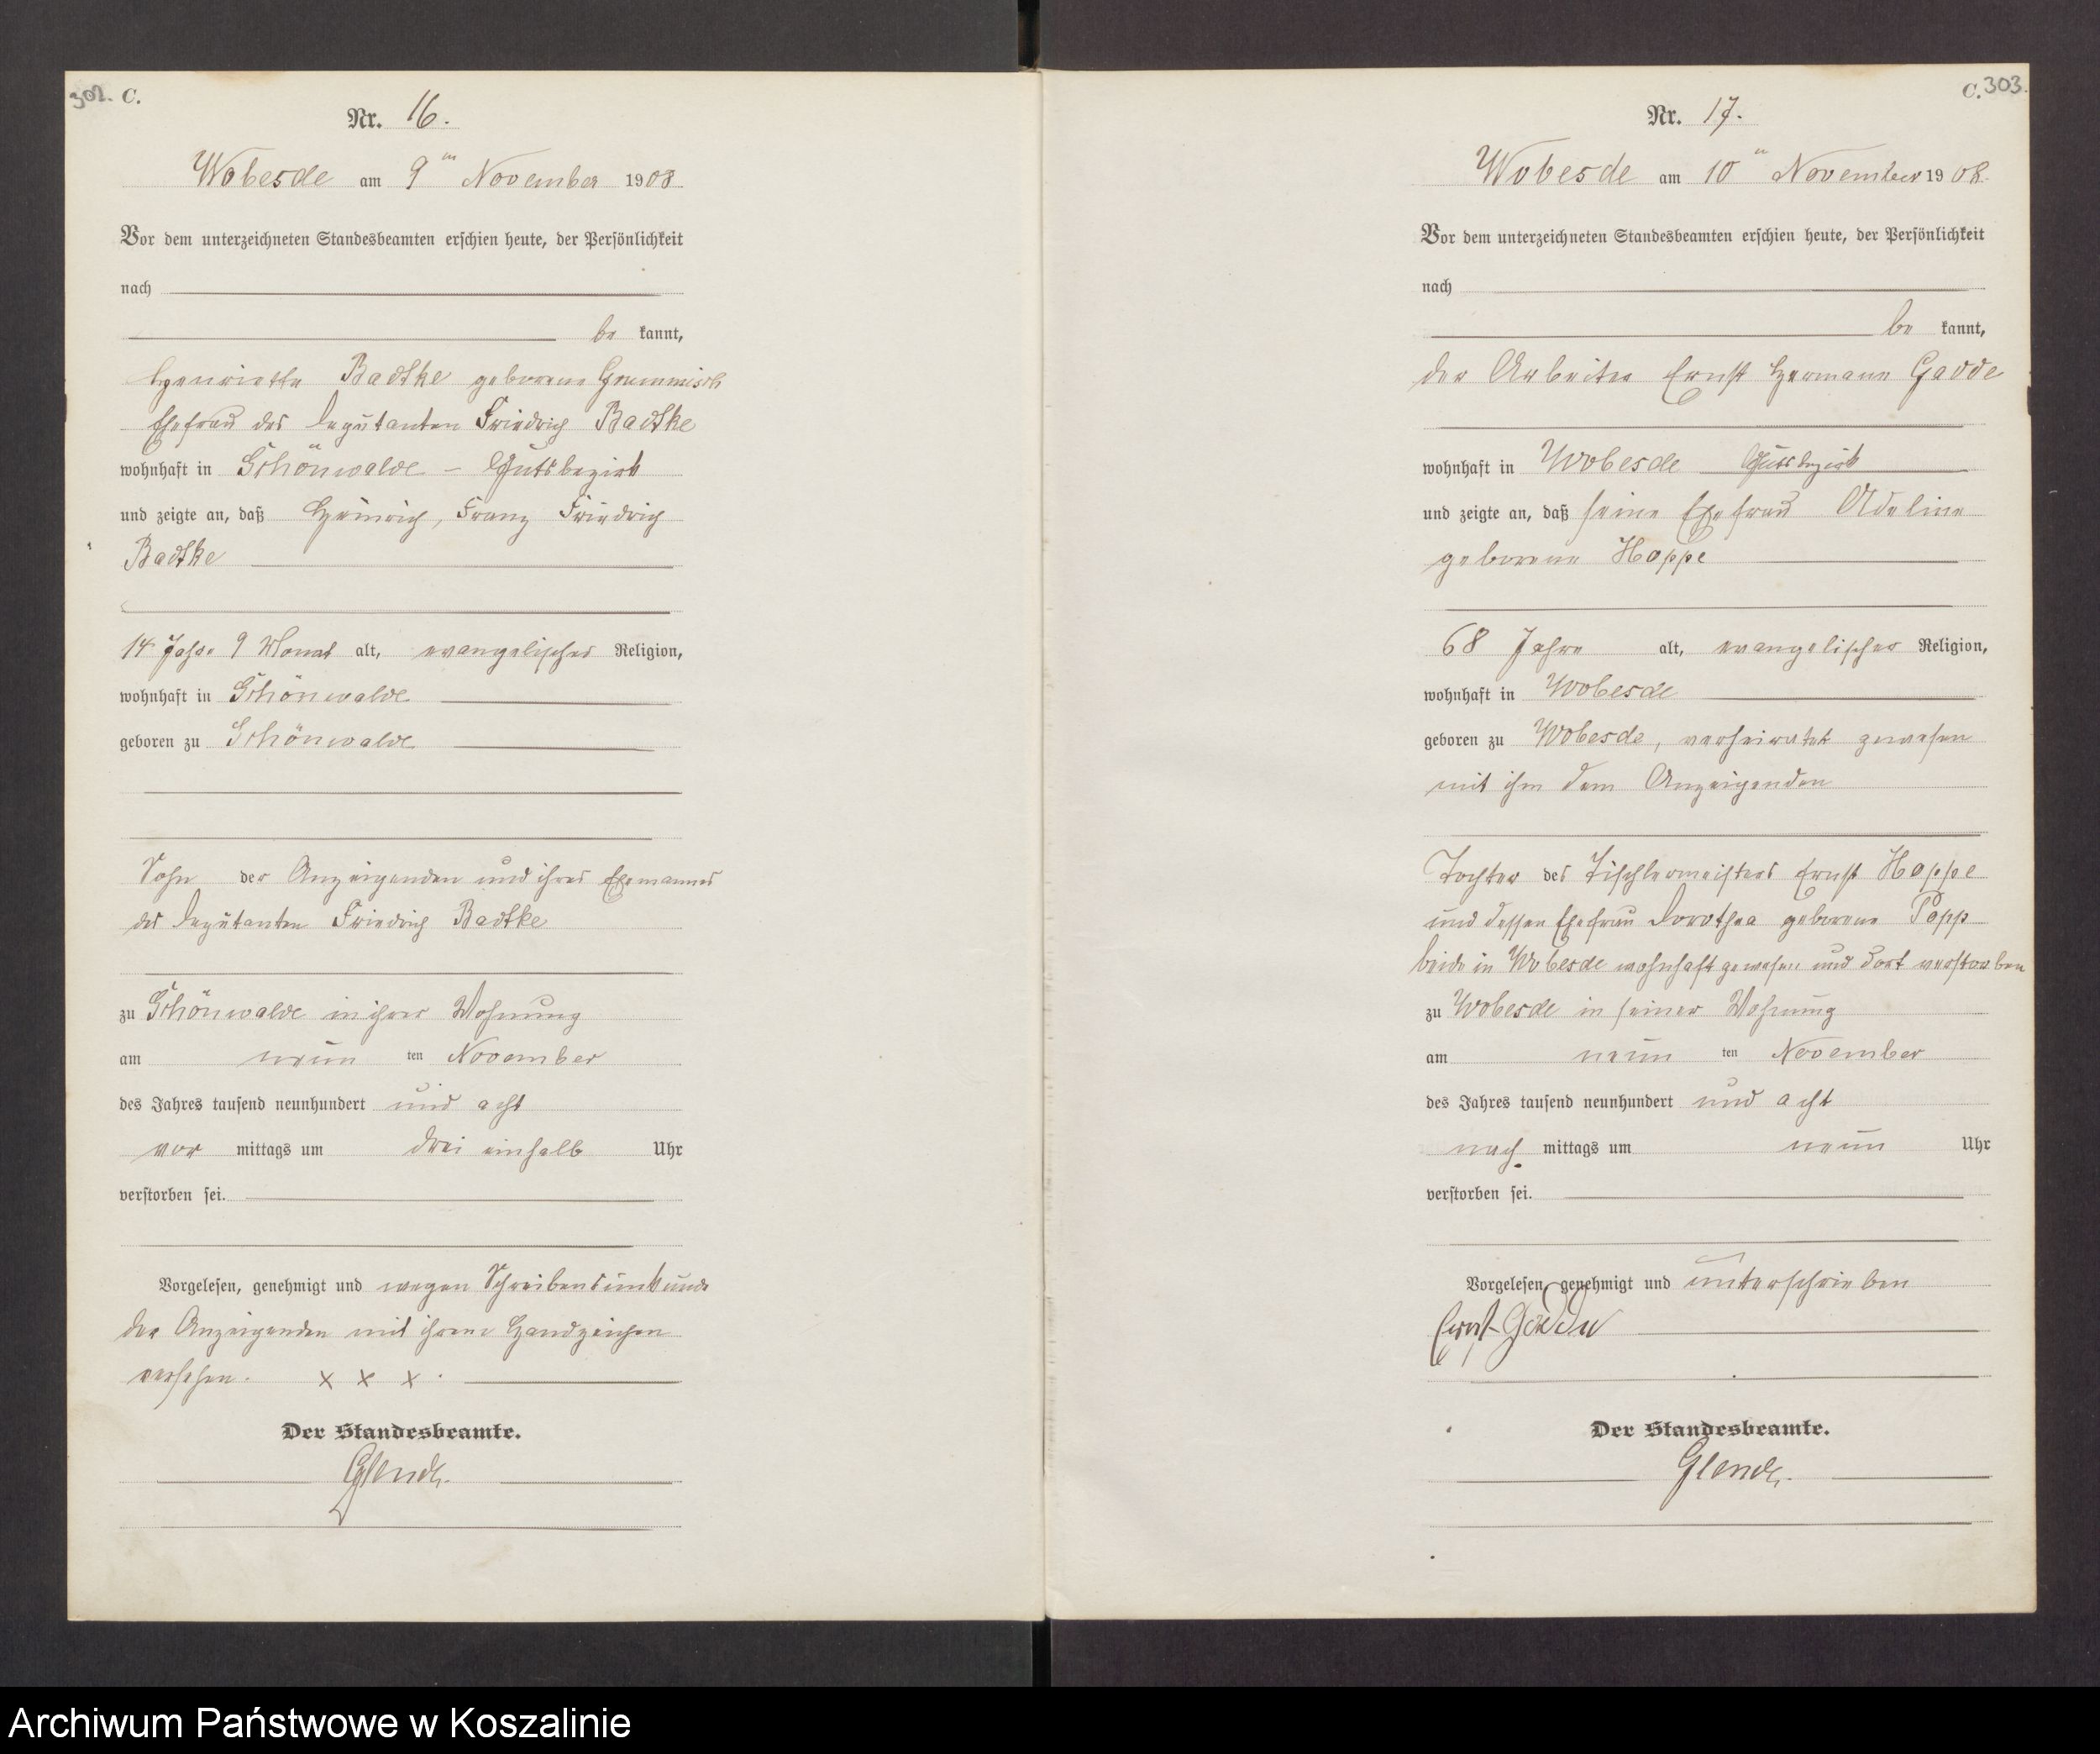 302. C.
Nr. 16.
Wobesde am 9ten November 1908.
Vor dem unterzeichneten Standesbeamten erschien heute, der Persönlichkeit
nach
be kannt,
Henriette Badtke geborene
Ehefrau des Deputanten Friedrich Badtke
wohnhaft in Schönwalde – Gutsbezirk
und zeigte an, daß Heinrich, Franz Friedrich
Badtke
14 Jahre 9 Monat alt, evangelischer Religion,
wohnhaft in Schönwalde
geboren zu Schönwalde
Sohn der Anzeigenden und ihres Ehemannes
des Deputanten Friedrich Badtke
zu Schönwalde in ihrer Wohnung
am neun ten November
des Jahres tausend neunhundert und acht
vor mittags um drei einhalb Uhr
verstorben sei.
Vorgelesen, genehmigt und wegen Schreibensunkunde
der Anzeigenden mit ihrem Handzeichen
versehen. x x x.
Der Standesbeamte.
C. 303.
Nr. 17.
Wobesde am 10ten November 1908.
Vor dem unterzeichneten Standesbeamten erschien heute, der Persönlichkeit
nach
be kannt,
der Arbeiter Ernst Hermann Gadde
wohnhaft in Wobesde Gutsbezirk
und zeigte an, daß seine Ehefrau Adeline
geborene Hoppe
68 Jahre alt, evangelischer Religion,
wohnhaft in Wobesde
geboren zu Wobesde, verheiratet gewesen
mit ihm dem Anzeigenden
Tochter des Tischlermeisters Ernst Hoppe
und dessen Ehefrau Dorothea geborene Papp
beide in Wobesde wohnhaft gewesen und dort verstorben
zu Wobesde in seiner Wohnung
am neun ten November
des Jahres tausend neunhundert und acht
nach mittags um neun Uhr
verstorben sei.
Vorgelesen, genehmigt und unterschrieben
Ernst Gadde
Der Standesbeamte.
Archiwum Państwowe w Koszalinie